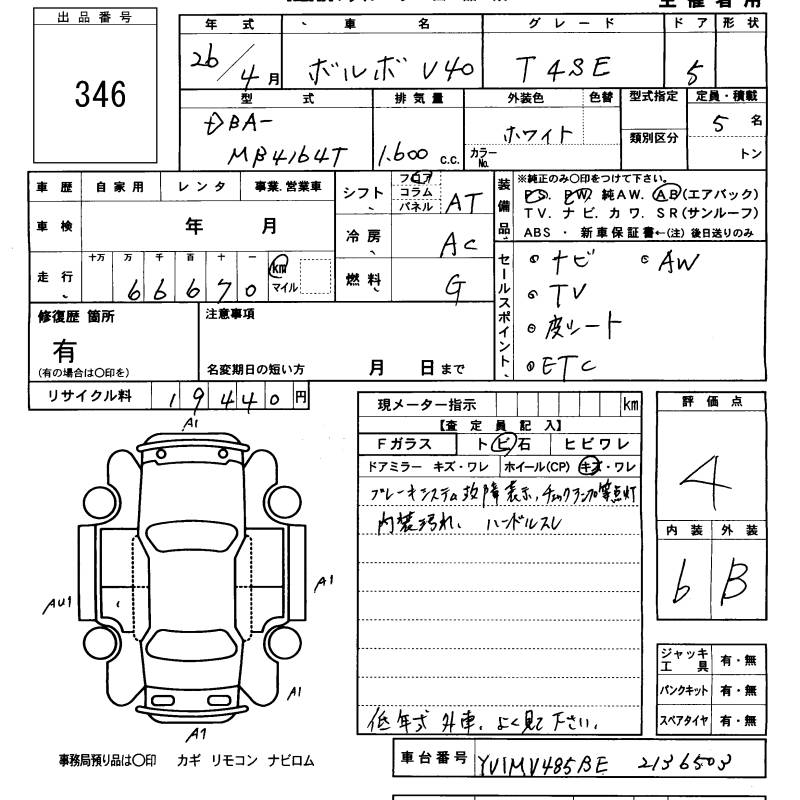 出品番号
346
年式 車名 グレード ドア 形状
26/4月 ボルボV40 T4SE 5
型式 排気量 外装色 色替 型式指定 定員・積載
DBA-
MB4164T 1.600 c.c. ホワイト 5名
カラーNo. 類別区分 トン
車歴 自家用 レンタ 事業.営業車
車検 年 月
走行 十万 万 千 百 十 一
66670 km マイル
シフト フロア コラム パネル AT
冷房 AC
燃料 G
装備品
※純正のみ〇印をつけて下さい。
PS. PW. 純AW. AB(エアバック)
TV. ナビ. カワ. SR(サンルーフ)
ABS ・ 新車保証書←(注) 後日送りのみ
セールスポイント
ナビ AW
TV
シート
ETC
修復歴 箇所
有
(有の場合は〇印を)
注意事項
名変期日の短い方 月 日まで
リサイクル料 19440円
現メーター指示 km
【査定員記入】
Fガラス トビ石 ヒビワレ
ドアミラー キズ・ワレ ホイール(CP) キズ・ワレ
ブレーキシステム故障表示、チェックランプ等点灯
内装汚れ、 ハンドルスレ
低年式 外車、よく見て下さい。
評価点
4
内装 外装
6 B
ジャッキ工具 有・無
パンクキット 有・無
スペアタイヤ 有・無
A1
AU1
A1
A1
A1
事務局預り品は〇印 カギ リモコン ナビロム
車台番号 YV1MV485BE 2136503